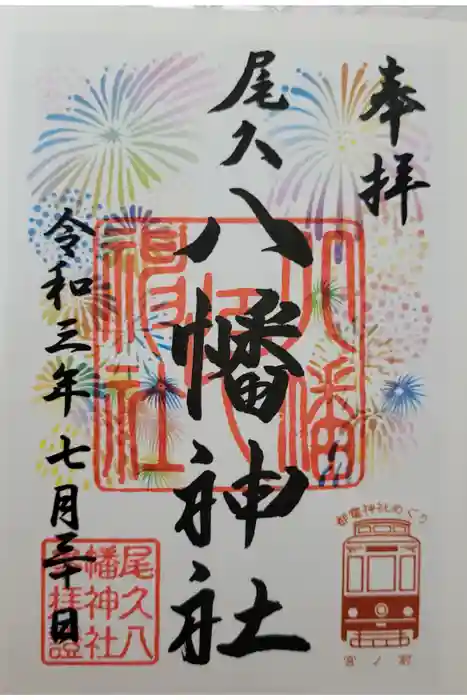 奉拝
尾久八幡神社
令和三年七月三十日
尾久八
幡神社
参拝證
都電神社めぐり
宮ノ前